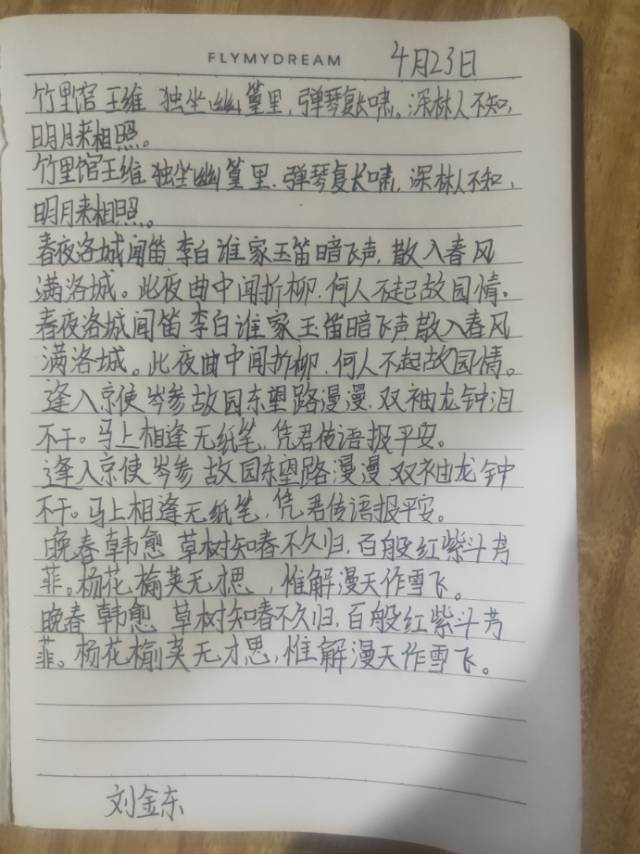 FLYMYDREAM 4月23日
竹里馆 王维 独坐幽篁里，弹琴复长啸。深林人不知，
明月来相照。
竹里馆王维 独坐幽篁里，弹琴复长啸，深林人不知，
明月来相照。
春夜洛城闻笛 李白 谁家玉笛暗飞声，散入春风
满洛城。此夜曲中闻折柳，何人不起故园情。
春夜洛城闻笛 李白 谁家玉笛暗飞声 散入春风
满洛城。此夜曲中闻折柳，何人不起故园情。
逢入京使 岑参 故园东望路漫漫，双袖龙钟泪
不干。马上相逢无纸笔，凭君传语报平安。
逢入京使 岑参 故园东望路漫漫 双袖龙钟
不干。马上相逢无纸笔，凭君传语报平安。
晚春 韩愈 草树知春不久归，百般红紫斗芳
菲。杨花榆荚无才思，惟解漫天作雪飞。
晚春 韩愈 草树知春不久归，百般红紫斗芳
菲。杨花榆荚无才思，惟解漫天作雪飞。
刘金东